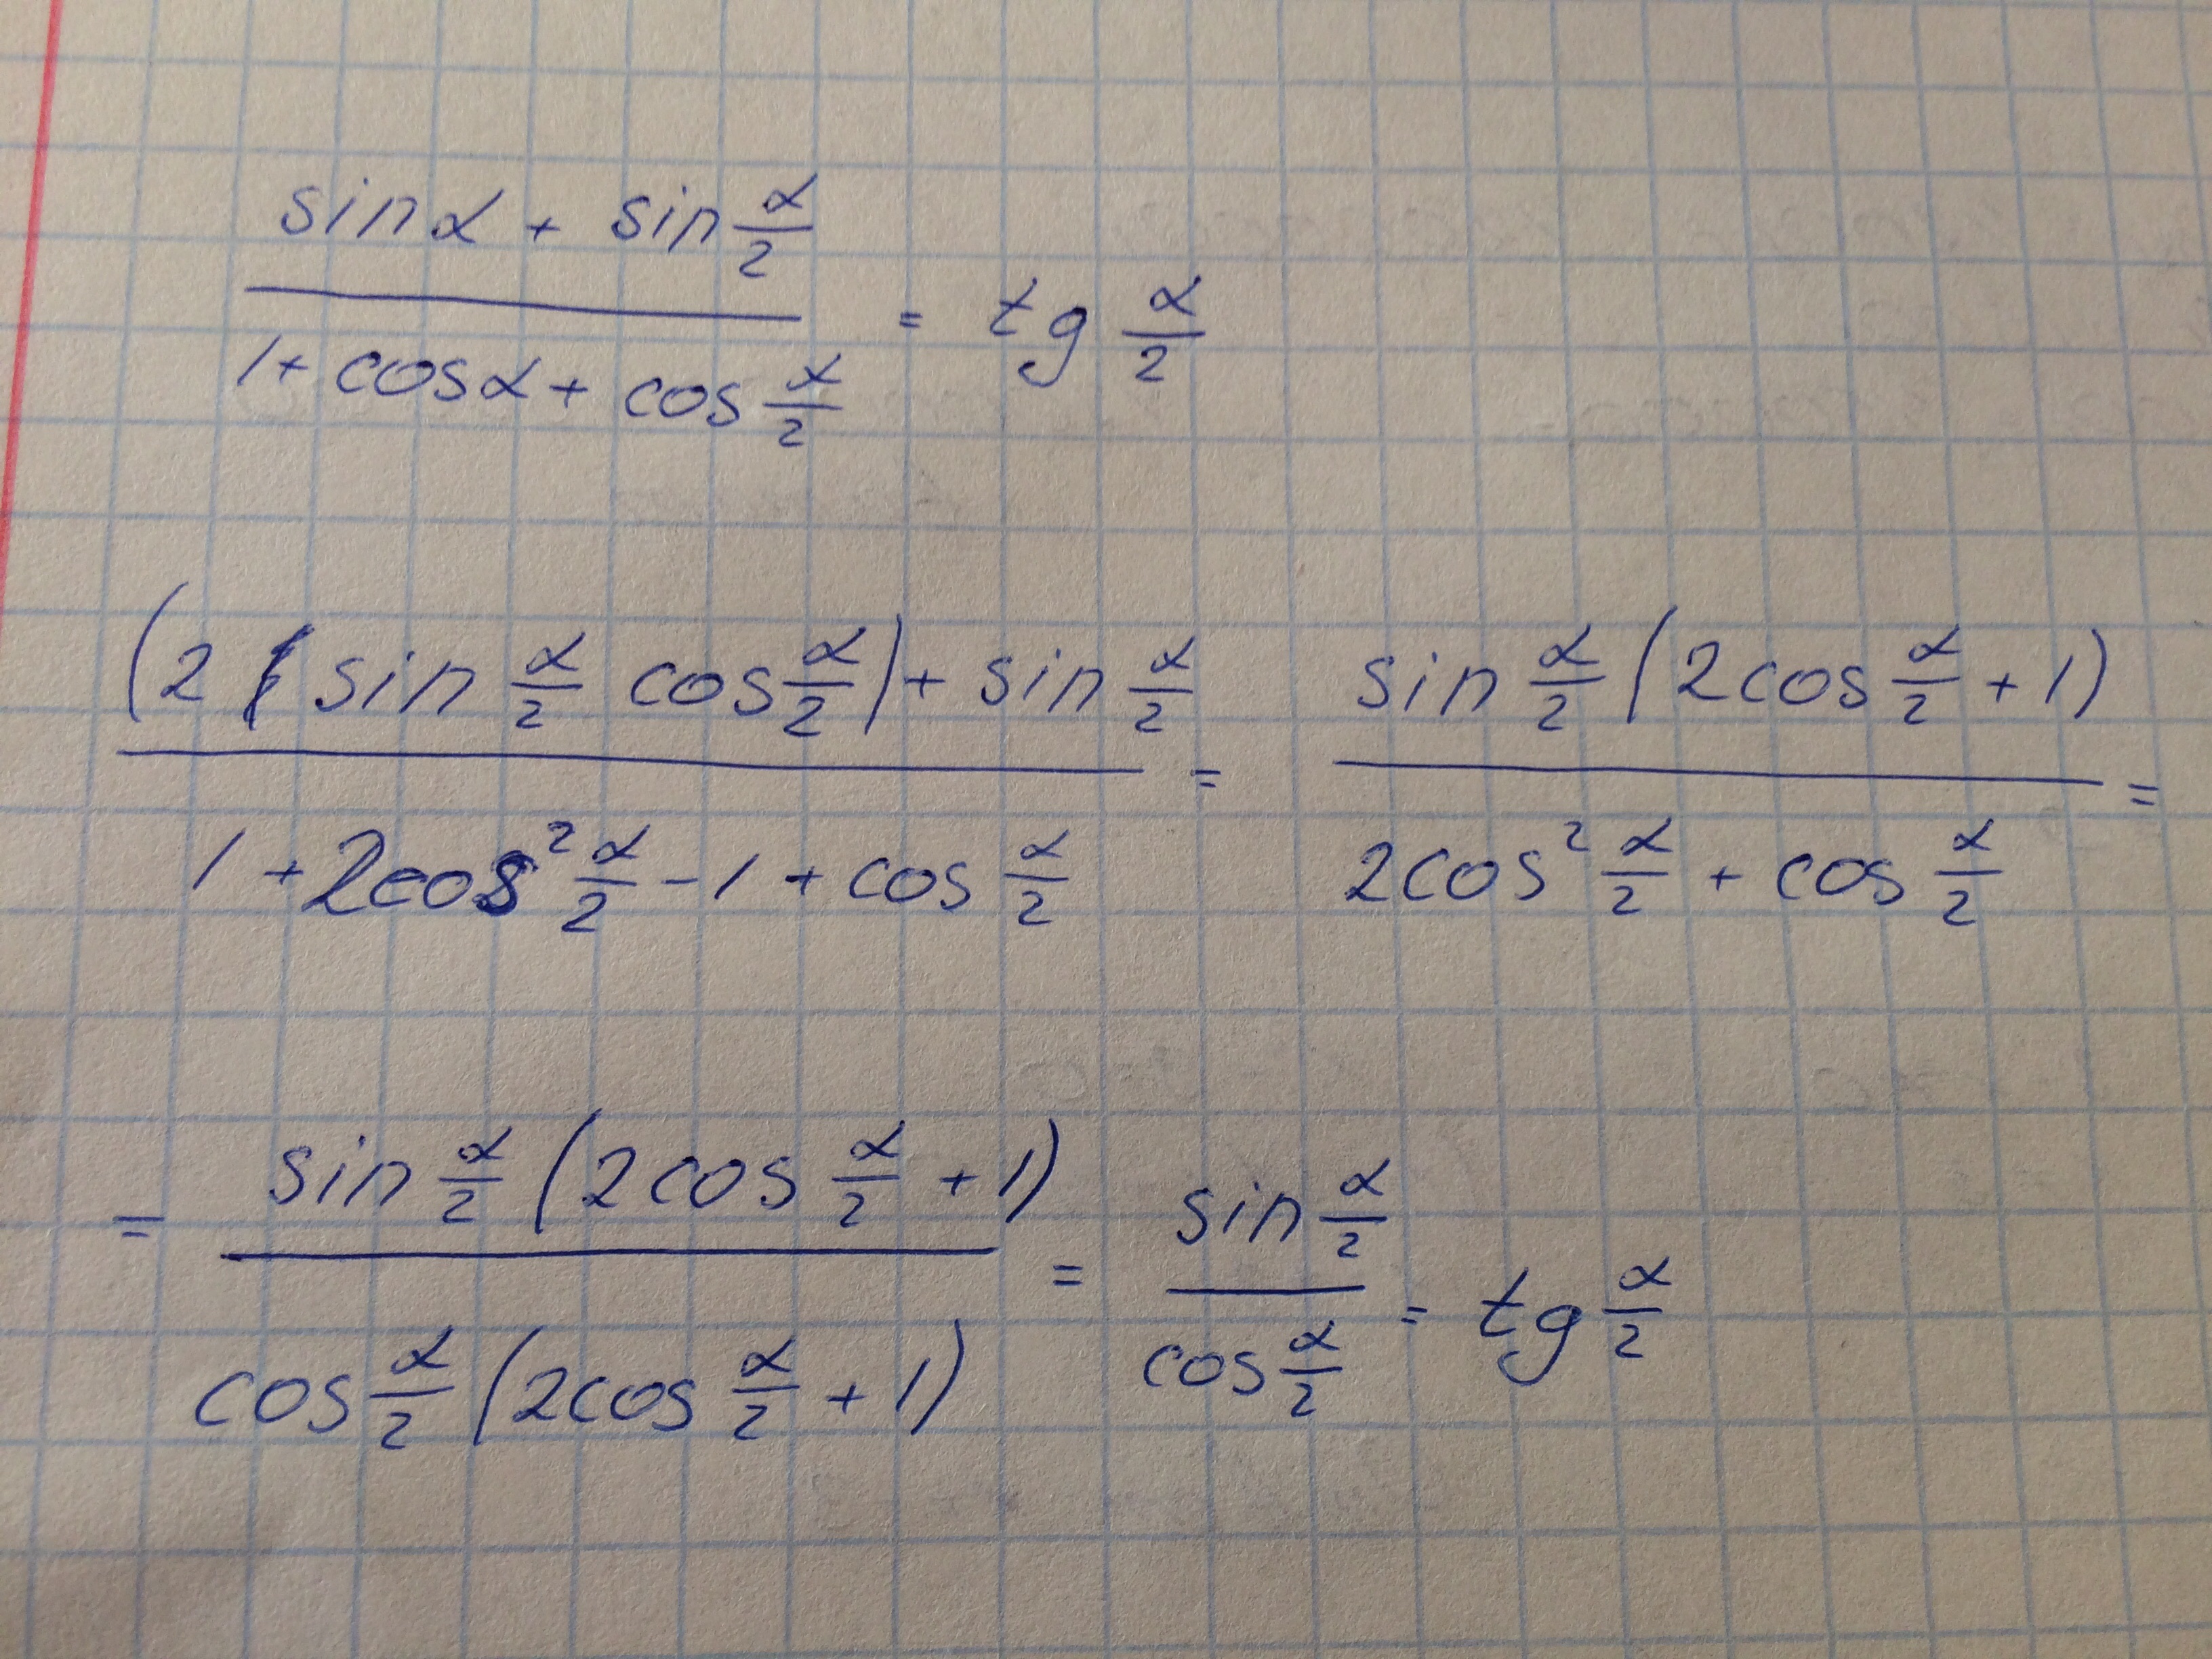 sinα + sin α/2
────────── = tg α/2
1 + cosα + cos α/2
(2 sin α/2 cos α/2) + sin α/2 / 1 + 2cos² α/2 - 1 + cos α/2 = sin α/2 (2cos α/2 + 1) / 2cos² α/2 + cos α/2 =
= sin α/2 (2cos α/2 + 1) / cos α/2 (2cos α/2 + 1) = sin α/2 / cos α/2 = tg α/2